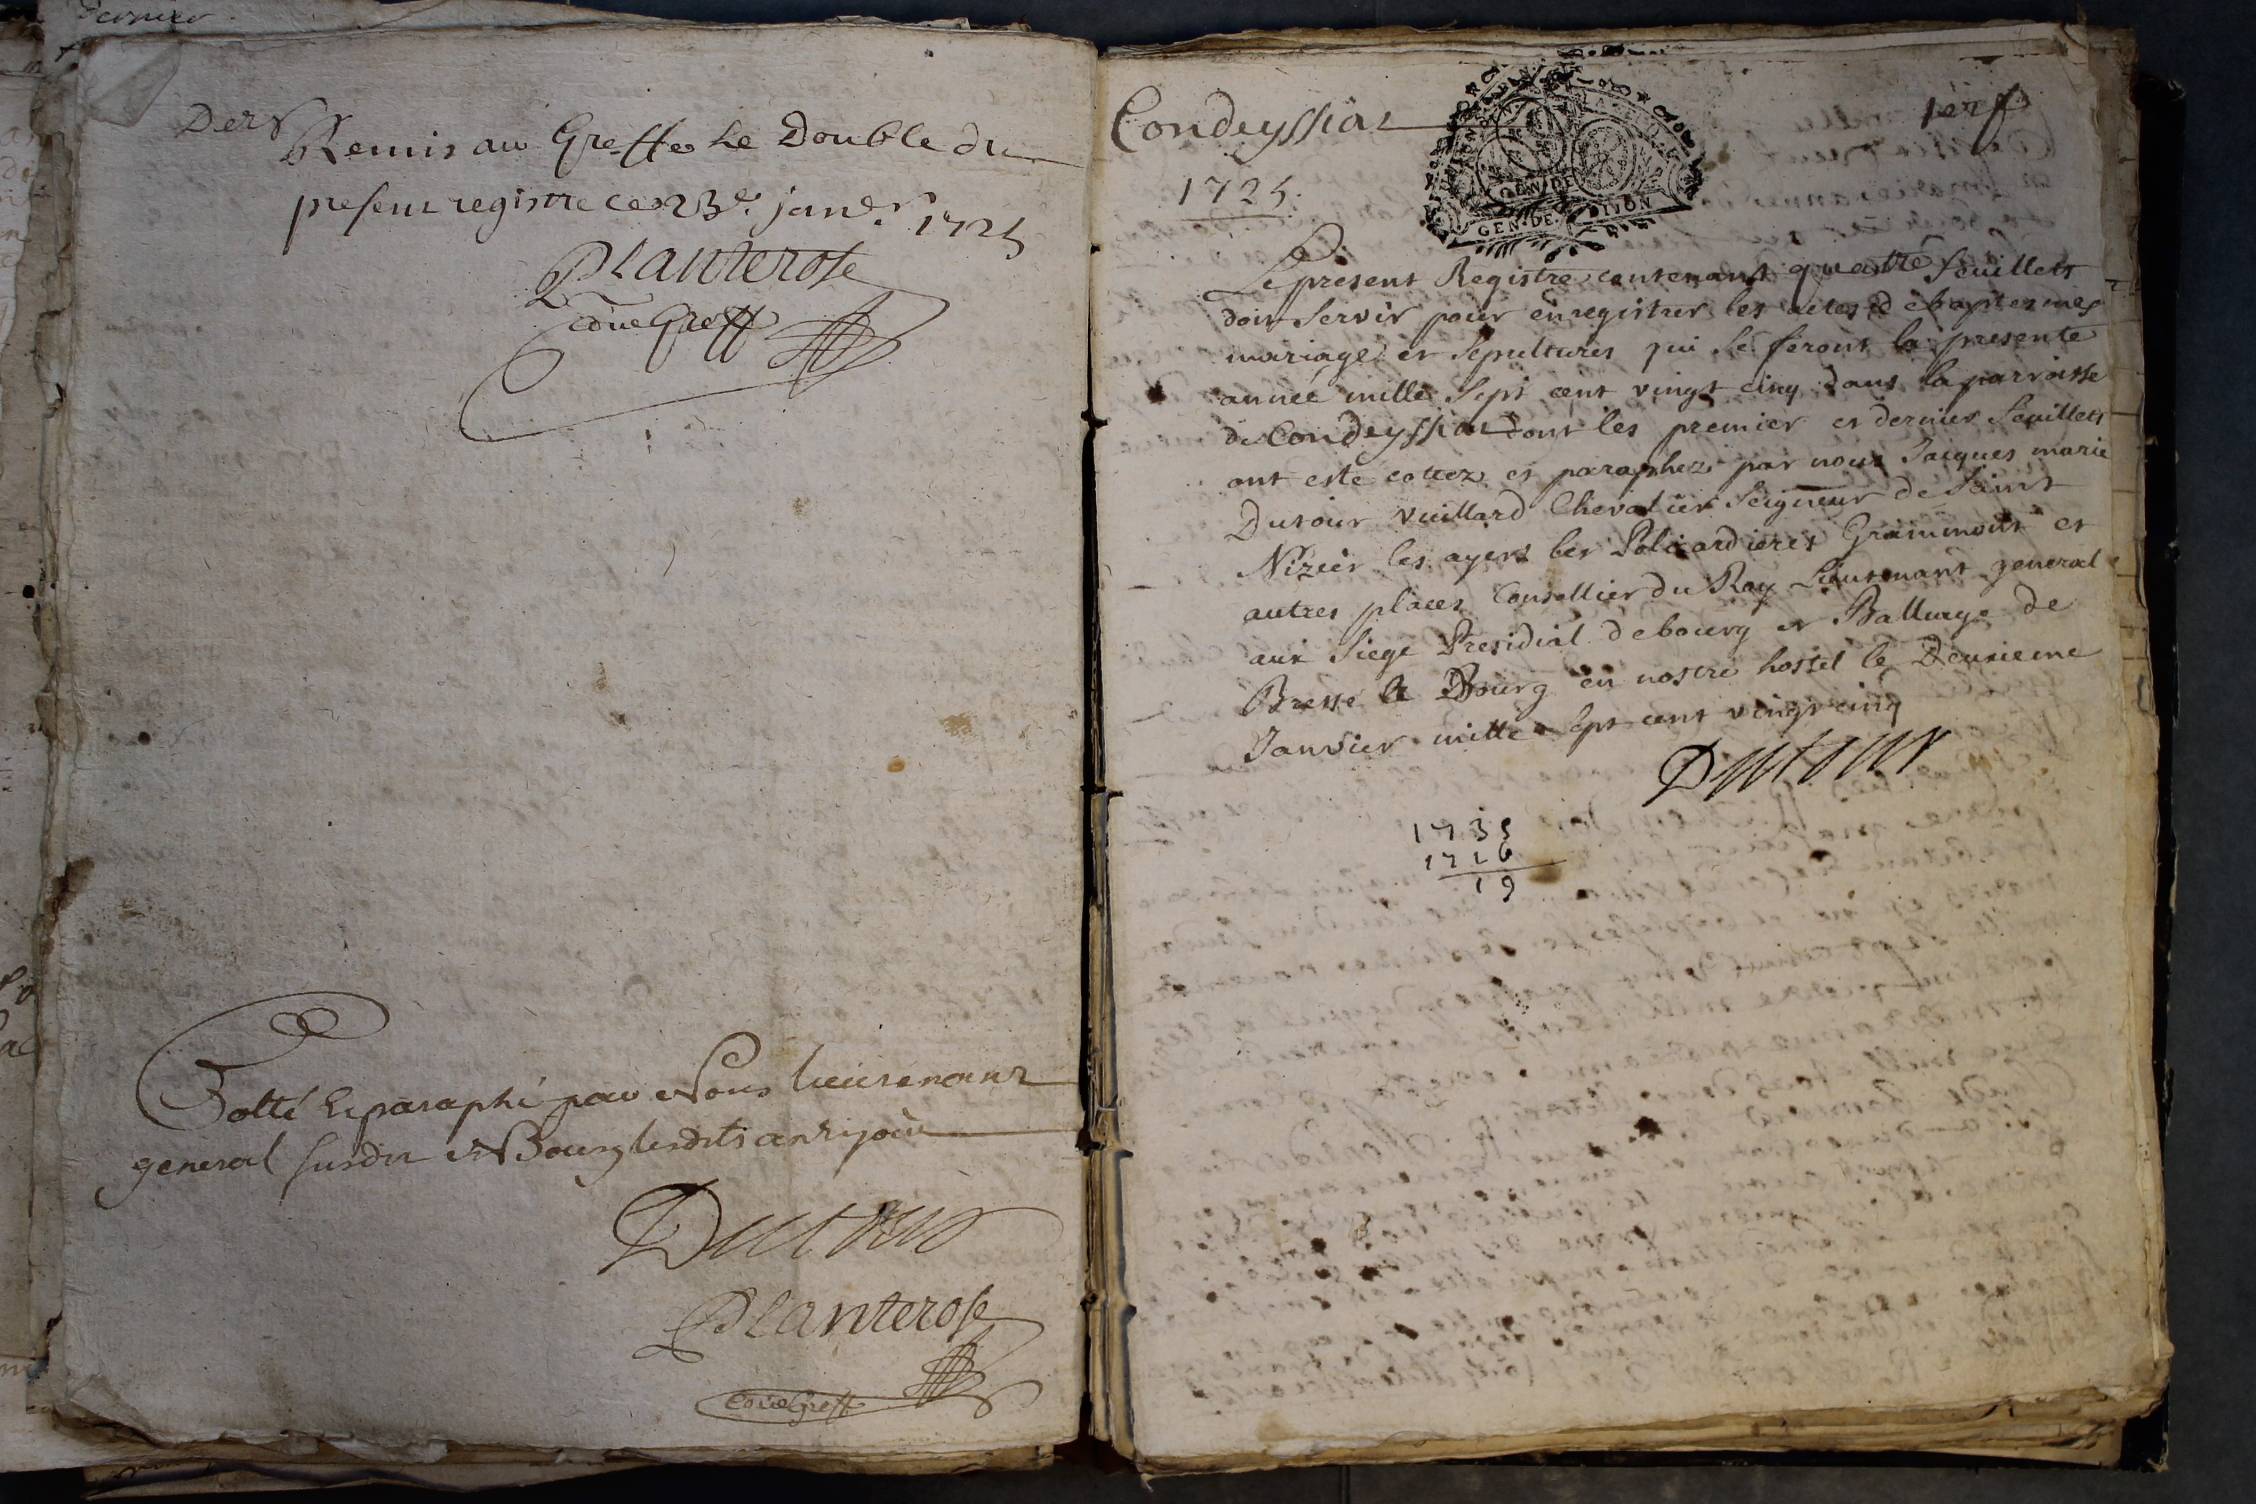 dernier
Der
Remis au Greffe Le Double du
present registre ce 23e. janer. 1725
Planterose
Cotté et paraphé par Nous lieutenant
general susdit a Bourg lesdits an et jour
Dutour
Planterose
Condeyssiat
1er f
1725.
GEN. DE DIJON
Le present Registre contenant quattre feuillets
doit servir pour enregistrer les actes de baptesmes
mariages et sepultures qui se feront la presente
année mille sept cent vingt cinq dans la parroisse
de Condeyssiat dont les premier et dernier feuillets
ont esté cottez et paraphez par nous Jacques marie
Dutour vuillard Chevalier Seigneur de Saint
Nizier les ayers les Grammont et
autres places Conseillier du Roy Lieutenant general
aux Siege Presidial de bourg et Balliage de
Bresse a Bourg en nostre hostel le Deuxieme
Janvier mille sept cent vingt cinq
Dutour
1735
1716
19